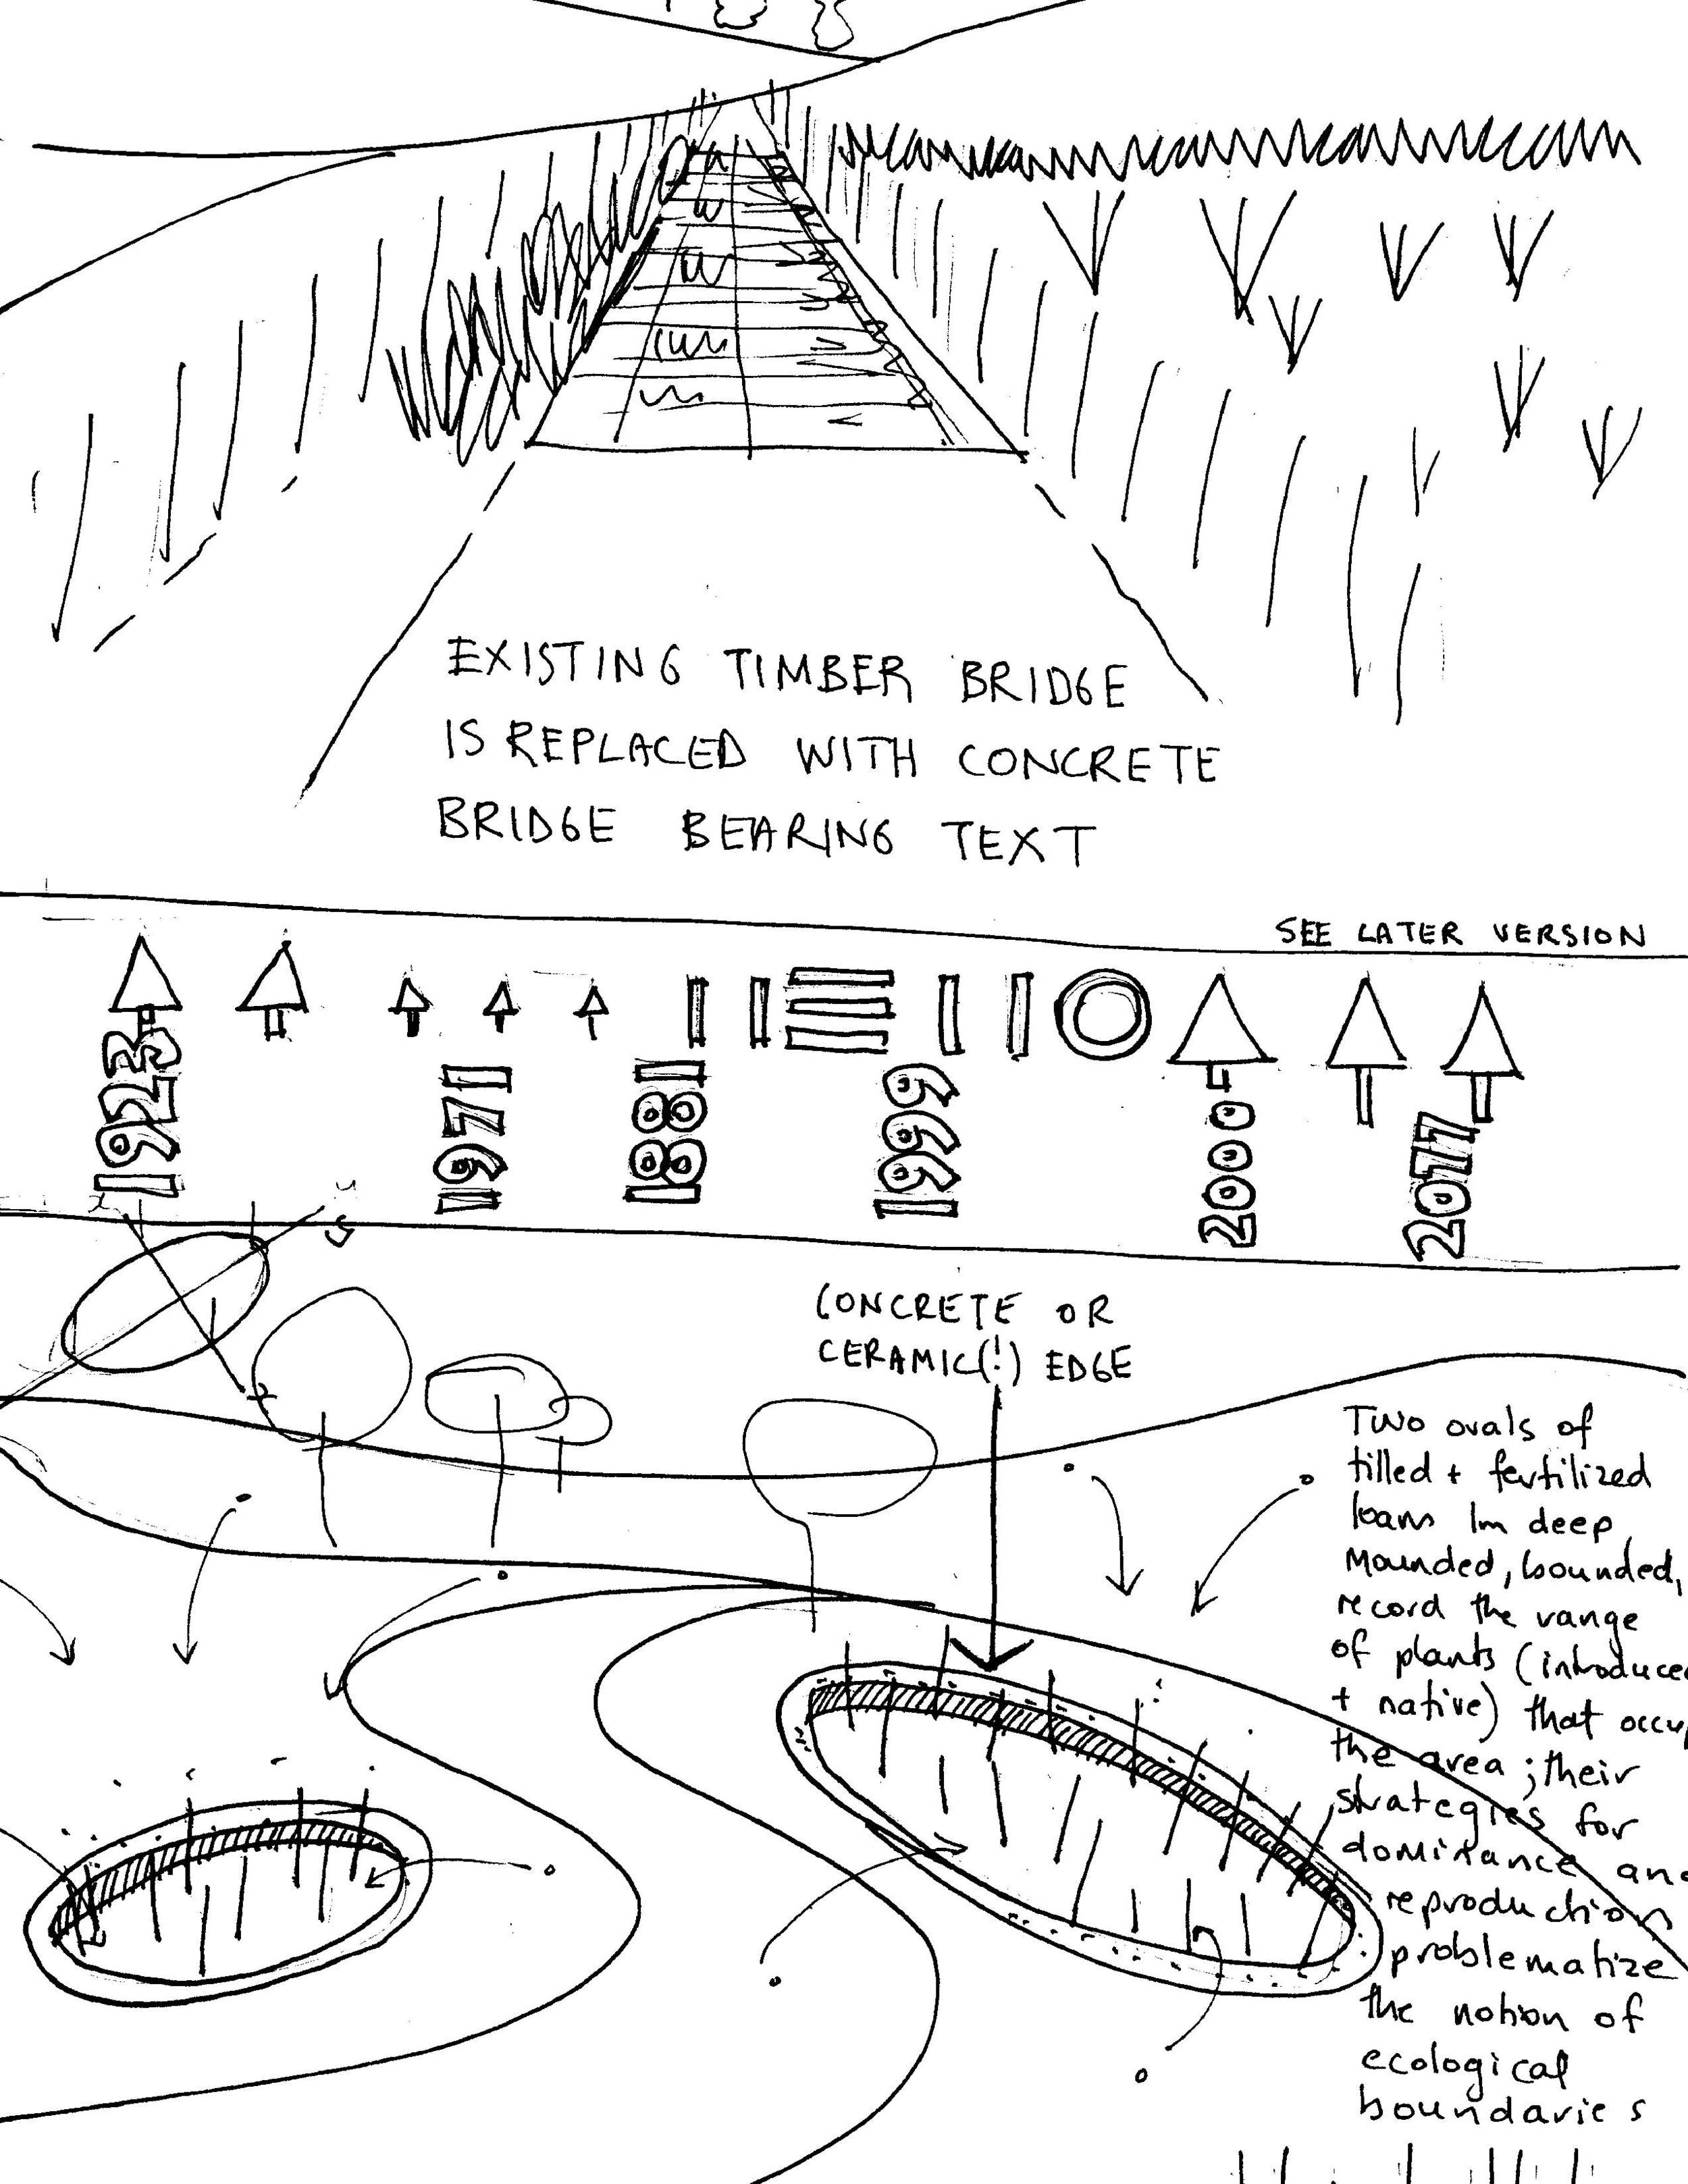 EXISTING TIMBER BRIDGE
IS REPLACED WITH CONCRETE
BRIDGE BEARING TEXT
SEE LATER VERSION
1923
1971
1881
1999
2000
2077
CONCRETE OR
CERAMIC(!) EDGE
Two ovals of
tilled + fertilized
loam 1m deep
Mounded, bounded,
record the range
of plants (introduce
+ native) that occup
the area; their
strategies for
dominance and
reproduction
problematize
the notion of
ecological
boundaries